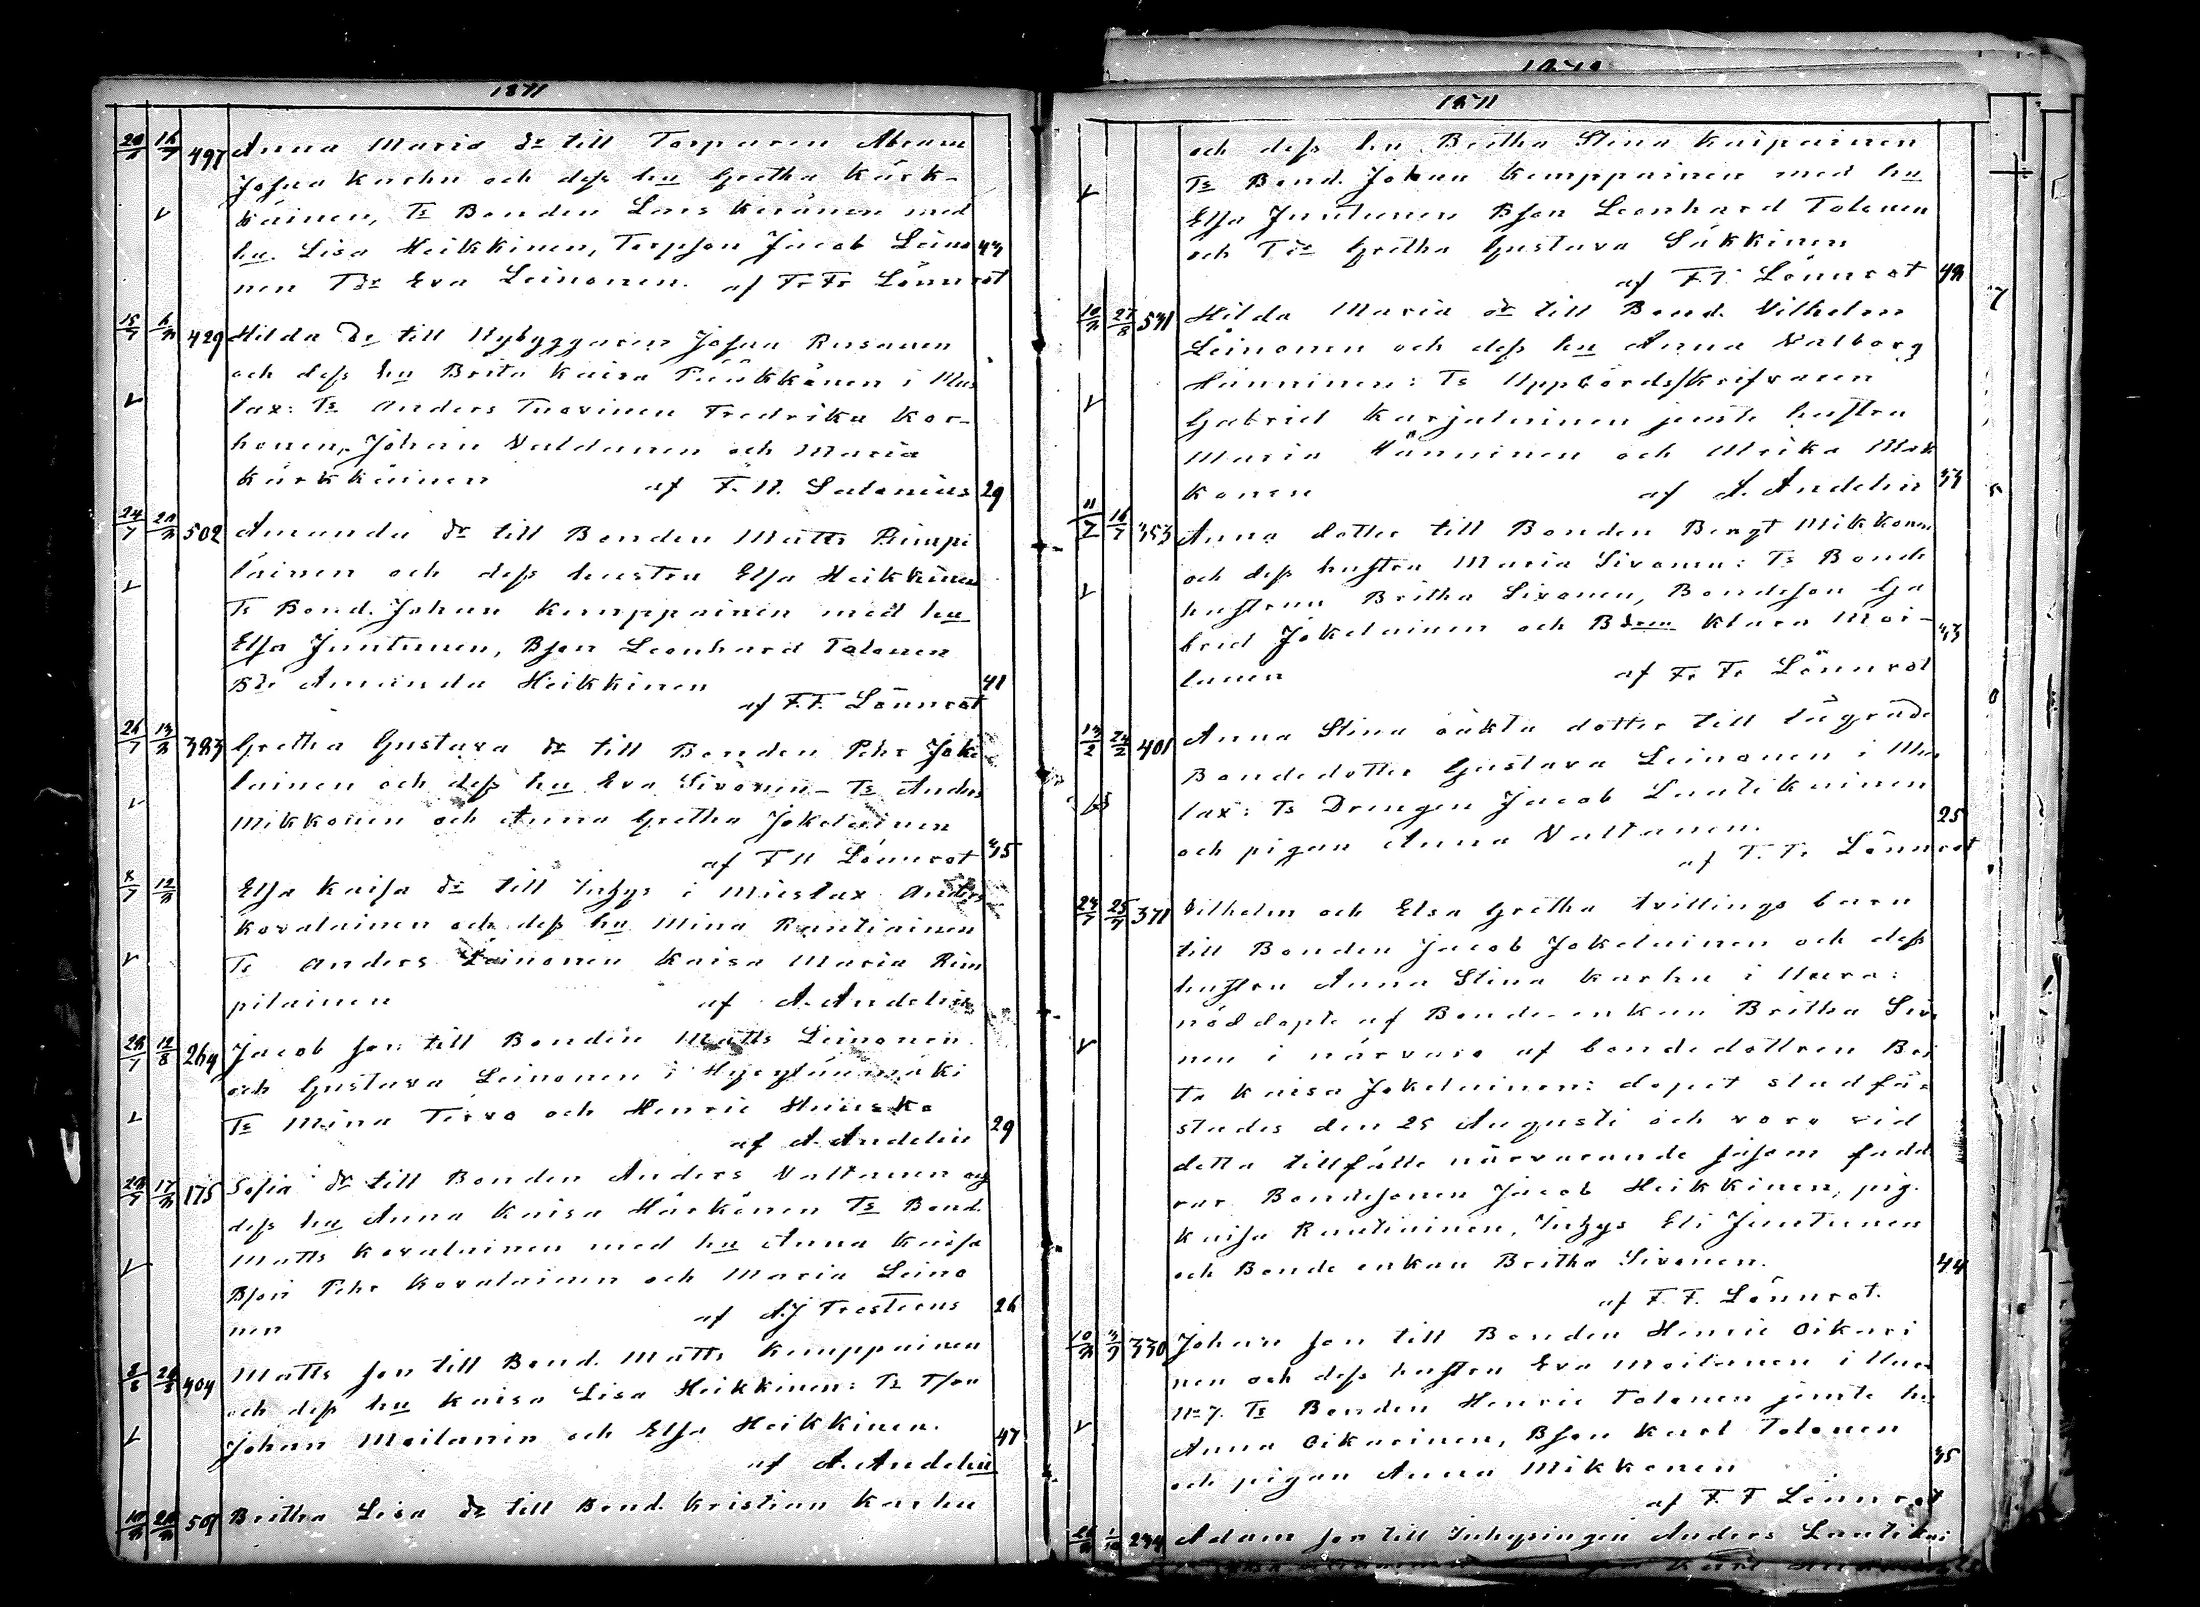 1871
20/6 16/7 497 Anna Maria dr till Torparen Abram
Johan Karhu och dess hu Gretha Kärk-
käinen, Ts Bonden Lars Keränen med
hu. Lisa Heikkinen, Torpson Jacob Leino 43
nen Tdr Eva Leinonen. af F. F. Lönnrot
15/7 6/8 429 Hilda dr till Nybyggaren Johan Rusanen
och dess hu Brita Kaisa Pääkkönen i Mus
lax: Ts Anders Tuovinen Fredrika Kor-
honen, Johan Valdanen och Maria
Kärkkäinen af F. W. Salonius 29
24/7 20/8 502 Amanda dr till Bonden Matts Rimpi
läinen och dess hustru Elsa Heikkinen
Ts Bond. Johan Kemppainen med hu
Elsa Juntunen, Bson Leonhard Tolonen
Bdr Amanda Heikkinen 41
af F. F. Lönnrot
26/7 13/8 383 Gretha Gustava dr till Bonden Pehr Joke
lainen och dess hu Eva Sivonen - Ts Anders
Mikkonen och Anna Gretha Jokelainen
af F. F. Lönnrot 35
8/7 12/8 Elsa Kaisa dr till Inhys i Mieslax Anders
Kovalainen och dess hu Mina Rautiainen
Ts Anders Leinonen Kaisa Maria Rim
pilainen af A. Andelin
28/7 12/8 264 Jacob son till Bonden Matts Leinonen
och Gustava Leinonen i
Ts Mina Tervo och Henric Huusko
af A. Andelin 29
20/7 17/8 175 Sofia dr till Bonden Anders Valtanen och
dess hu Anna Kaisa Härkönen Ts Bond.
Matts Kovalainen med hu Anna Kaisa
Bson Pehr Kovalainen och Maria Leino
nen af A. J Frosterus 26
2/8 26/8 404 Matts son till Bond. Matts Kemppainen
och dess hu Kaisa Lisa Heikkinen: Ts Tson
Johan Moilanen och Elsa Heikkinen. 47
af A. Andelin
10/8 20/8 509 Britha Lisa dr till Bond. Kristian Karhu
1871
och dess hu Britha Stina Kaipainen
Ts Bond. Johan Kemppainen med hu
Elsa Juntunen Bson Leonhard Tolonen
och Tdr Gretha Gustava Säkkinen
af F. F. Lönnrot 42
10/8 27/8 531 Hilda Maria dr till Bond. Vilhelm
Leinonen och dess hu Anna Valborg
Hänninen: Ts Uppbördsskrifvaren
Gabriel Karjalainen jemte hustru
Maria Hänninen och Ulrika Mok
konen af A. Andelin 33
11/7 16/7 353 Anna dotter till Bonden Bengt Mikkonen
och dess hustru Maria Sivonen: Ts Bonde
hustrun Britha Sivonen, Bondeson Ga
briel Jokelainen och Bdrn Klara Moi- 33
lanen af F. F. Lönnrot
13/2 24/2 401 Anna Stina oäkta dotter till lägrade
Bondedotter Gustava Leinonen i Mie
lax: Ts Drengen Jacob Lautikainen
och pigan Anna Valtanen. 25
af F. F. Lönnrot
24/7 25/7 371 Vilhelm och Elsa Gretha tvillings barn
till Bonden Jacob Jokelainen och dess
hustru Anna Stina Karhu i Uura:
nöddopte af Bonde-enkan Britha Sivo
nen i närvaro af bondedottren Bri
ta Kaisa Jokelainen: dopet stadfä-
stades den 25 Augusti och voro vid
detta tillfälle närvarande såsom fadd
rar Bondesonen Jacob Heikkinen, pig.
Kaisa Rautiainen, Inhys Eli Juntunen
och Bonde enkan Britha Sivonen. 44
af F. F. Lönnrot.
10/8 3/9 330 Johan son till Bonden Henric Oikari
nen och dess hustru Eva Moilanen i Uura
No 7. Ts Bonden Henric Tolonen jemte hu
Anna Oikarinen, Bson Karl Tolonen
och pigan Anna Mikkonen 35
af F. F Lönnrot
1/10 294 Adam son till Inhysingen Anders Lautikai